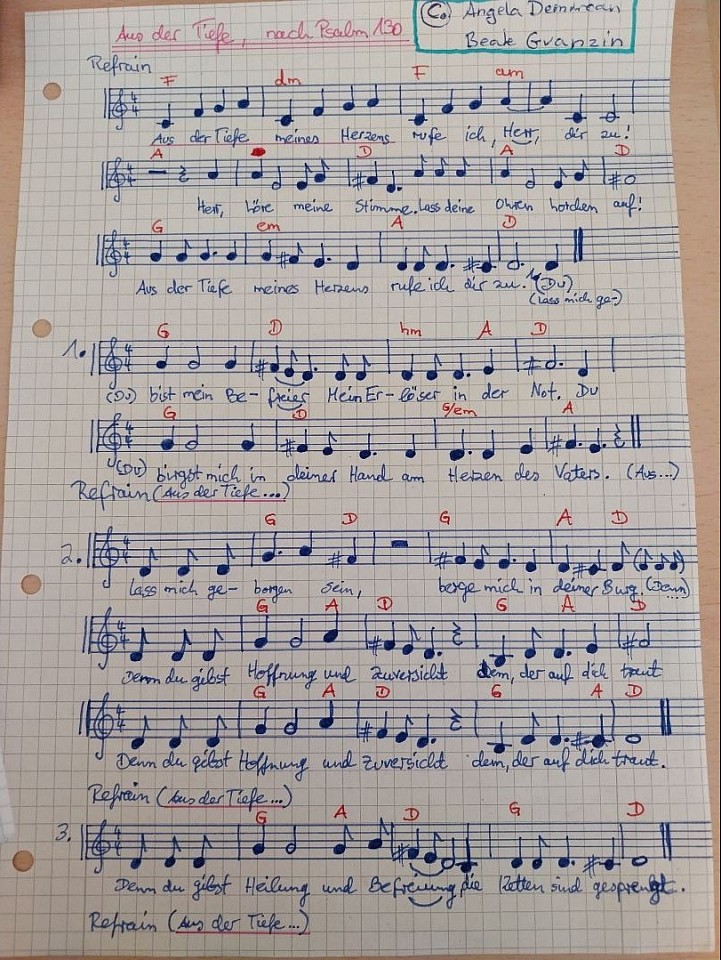 Aus der Tiefe, nach Psalm 130
© Angela Demmrean
Beate Gvanzin
Refrain
F dm F am
Aus der Tiefe meines Herzens rufe ich, Herr, dir zu!
A D A D
Herr, höre meine Stimme. Lass deine Ohren horchen auf!
G em A D
Aus der Tiefe meines Herzens rufe ich dir zu. (Du)
(lass mich ge-)
G D hm A D
1.
(Du) bist mein Be- freier Mein Er- löser in der Not. Du
G D G/em A
(Du) birgst mich in deiner Hand am Herzen des Vaters. (Aus...)
Refrain (Aus der Tiefe...)
G D G A D
2.
lass mich ge- borgen sein, berge mich in deiner Burg. (Denn)
G A D G A D
Denn du gibst Hoffnung und Zuversicht dem, der auf dich traut
G A D G A D
Denn du gibst Hoffnung und Zuversicht dem, der auf dich traut.
Refrain (Aus der Tiefe...)
G A D G D
3.
Denn du gibst Heilung und Befreiung, die Ketten sind gesprengt.
Refrain (Aus der Tiefe...)